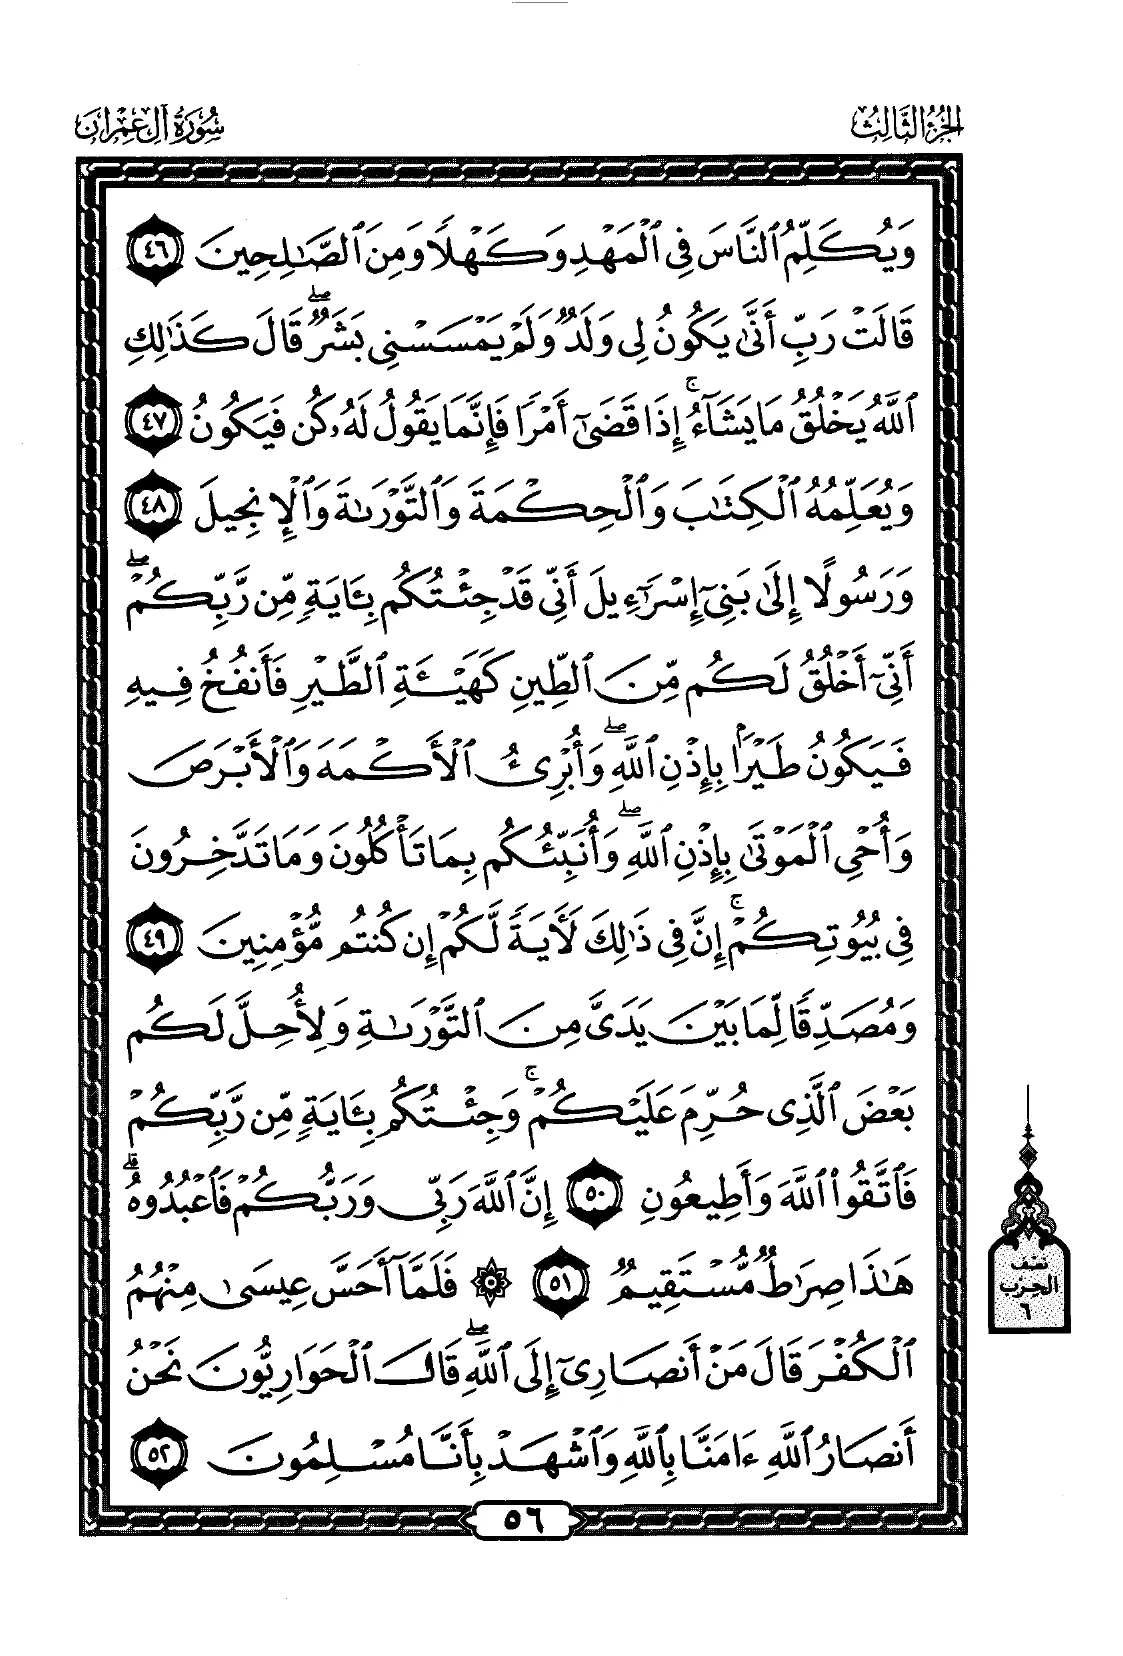 الجزء الثالث
سورة آل عمران
وَيُكَلِّمُ ٱلنَّاسَ فِى ٱلْمَهْدِ وَكَهْلًا وَمِنَ ٱلصَّٰلِحِينَ ٤٦
قَالَتْ رَبِّ أَنَّىٰ يَكُونُ لِى وَلَدٌ وَلَمْ يَمْسَسْنِى بَشَرٌ ۖ قَالَ كَذَٰلِكِ
ٱللَّهُ يَخْلُقُ مَا يَشَآءُ ۚ إِذَا قَضَىٰٓ أَمْرًا فَإِنَّمَا يَقُولُ لَهُۥ كُن فَيَكُونُ ٤٧
وَيُعَلِّمُهُ ٱلْكِتَٰبَ وَٱلْحِكْمَةَ وَٱلتَّوْرَىٰةَ وَٱلْإِنجِيلَ ٤٨
وَرَسُولًا إِلَىٰ بَنِىٓ إِسْرَٰٓءِيلَ أَنِّى قَدْ جِئْتُكُم بِـَٔايَةٍ مِّن رَّبِّكُمْ ۖ
أَنِّىٓ أَخْلُقُ لَكُم مِّنَ ٱلطِّينِ كَهَيْـَٔةِ ٱلطَّيْرِ فَأَنفُخُ فِيهِ
فَيَكُونُ طَيْرًۢا بِإِذْنِ ٱللَّهِ ۖ وَأُبْرِئُ ٱلْأَكْمَهَ وَٱلْأَبْرَصَ
وَأُحْىِ ٱلْمَوْتَىٰ بِإِذْنِ ٱللَّهِ ۖ وَأُنَبِّئُكُم بِمَا تَأْكُلُونَ وَمَا تَدَّخِرُونَ
فِى بُيُوتِكُمْ ۚ إِنَّ فِى ذَٰلِكَ لَـَٔايَةً لَّكُمْ إِن كُنتُم مُّؤْمِنِينَ ٤٩
وَمُصَدِّقًا لِّمَا بَيْنَ يَدَىَّ مِنَ ٱلتَّوْرَىٰةِ وَلِأُحِلَّ لَكُم
بَعْضَ ٱلَّذِى حُرِّمَ عَلَيْكُمْ ۚ وَجِئْتُكُم بِـَٔايَةٍ مِّن رَّبِّكُمْ
فَٱتَّقُوا۟ ٱللَّهَ وَأَطِيعُونِ ٥٠ إِنَّ ٱللَّهَ رَبِّى وَرَبُّكُمْ فَٱعْبُدُوهُ ۗ
هَٰذَا صِرَٰطٌ مُّسْتَقِيمٌ ٥١ ۞ فَلَمَّآ أَحَسَّ عِيسَىٰ مِنْهُمُ
ٱلْكُفْرَ قَالَ مَنْ أَنصَارِىٓ إِلَى ٱللَّهِ ۖ قَالَ ٱلْحَوَارِيُّونَ نَحْنُ
أَنصَارُ ٱللَّهِ ءَامَنَّا بِٱللَّهِ وَٱشْهَدْ بِأَنَّا مُسْلِمُونَ ٥٢
٥٦
نصف
الحزب
٦